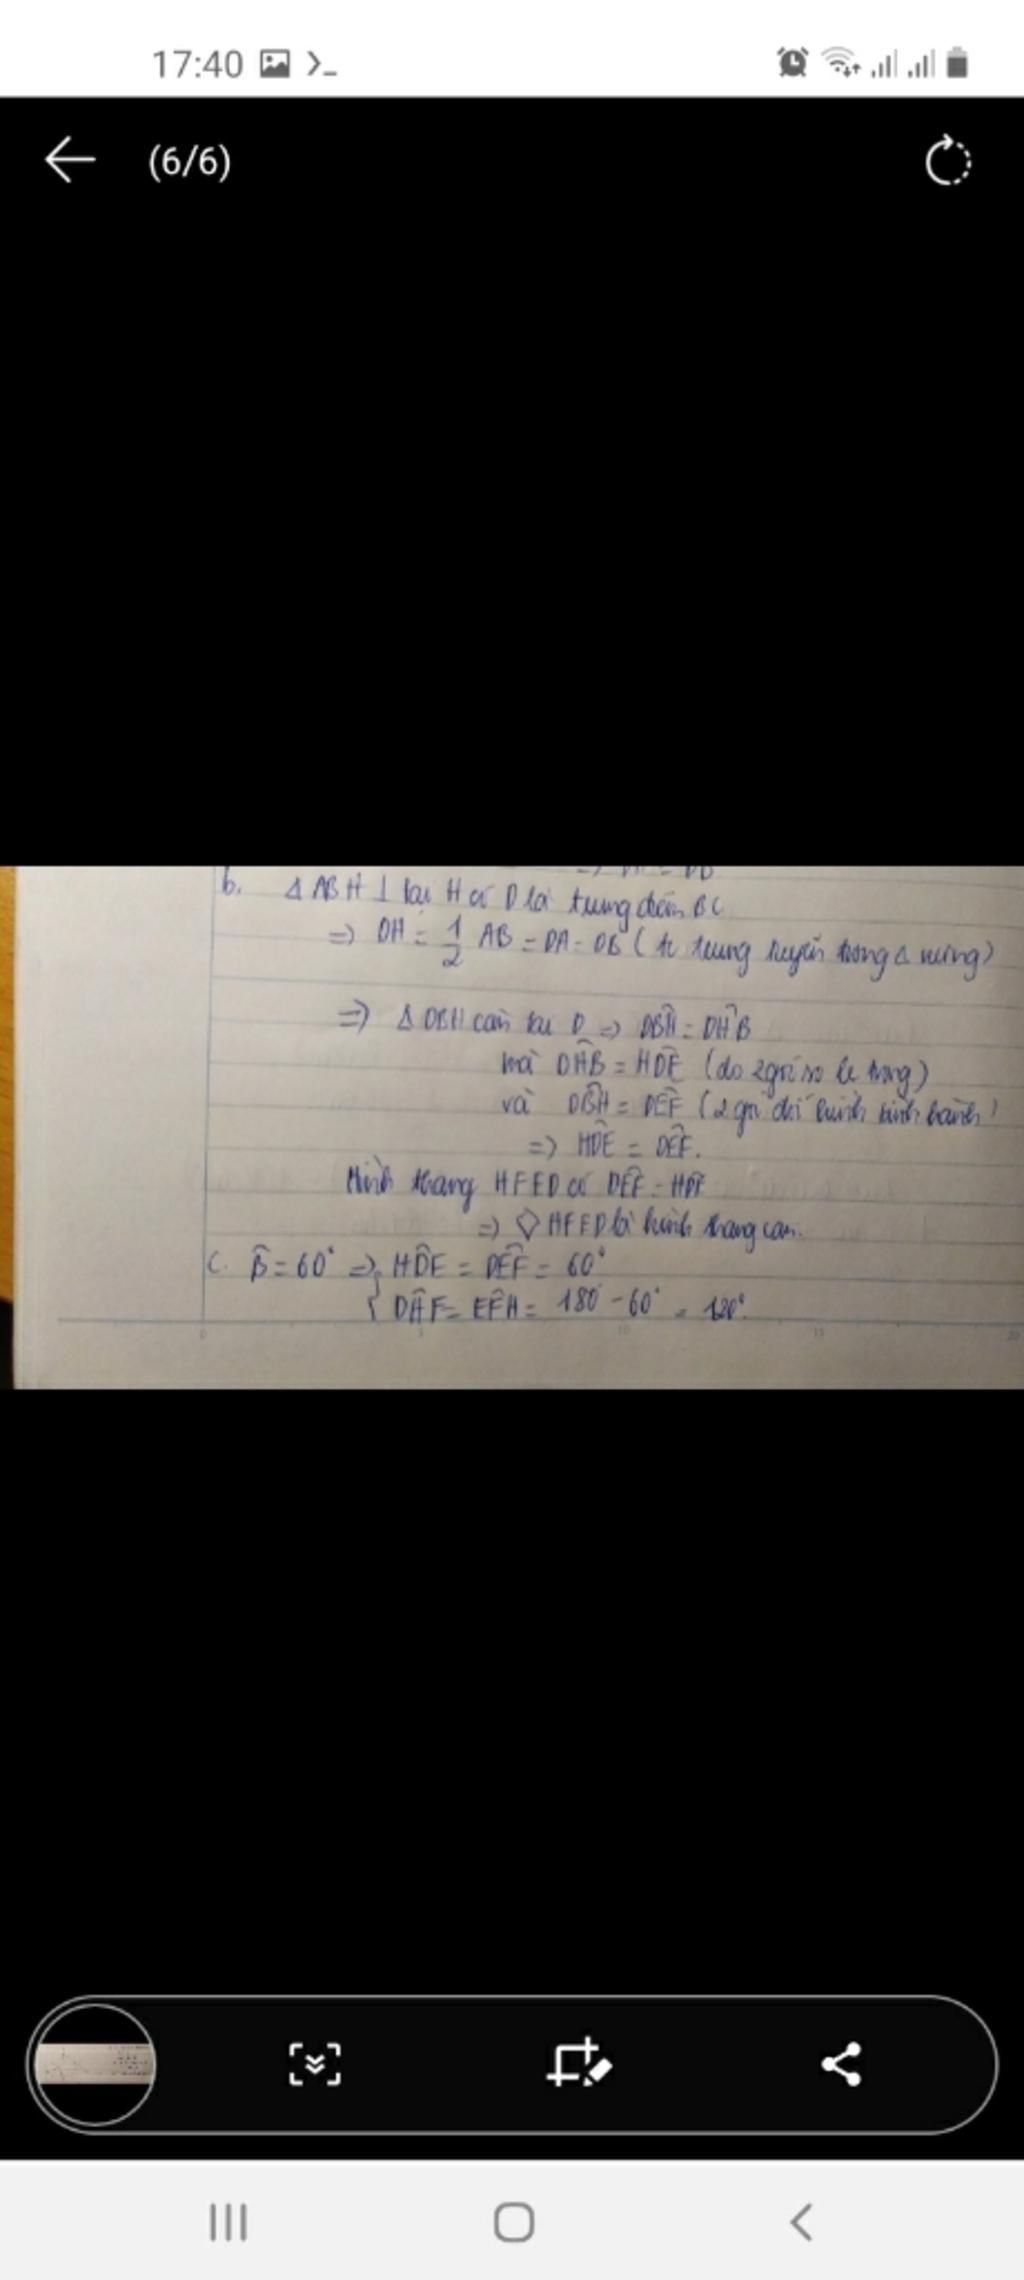 17:40
(6/6)
b. Δ ABH ⊥ tại H có D là trung điểm BC
=> DH = 1/2 AB = DA = DB ( tc trung tuyến trong Δ vuông)
=> Δ DBH cân tại D => DBH = DHB
mà DHB = HDE (do 2 góc so le trong)
và DBH = DEF (2 góc đối hình bình hành)
=> HDE = DEF.
Hình thang HFED có DEF = HDE
=> ◇ HFED là hình thang cân.
c. B = 60° => HDE = DEF = 60°
DHF = EFH = 180 - 60° = 120°.